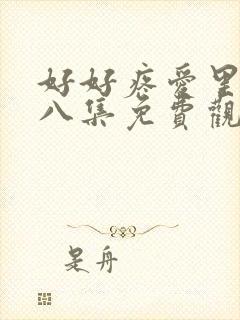 好好疼爱里
八集免費觀
是舟